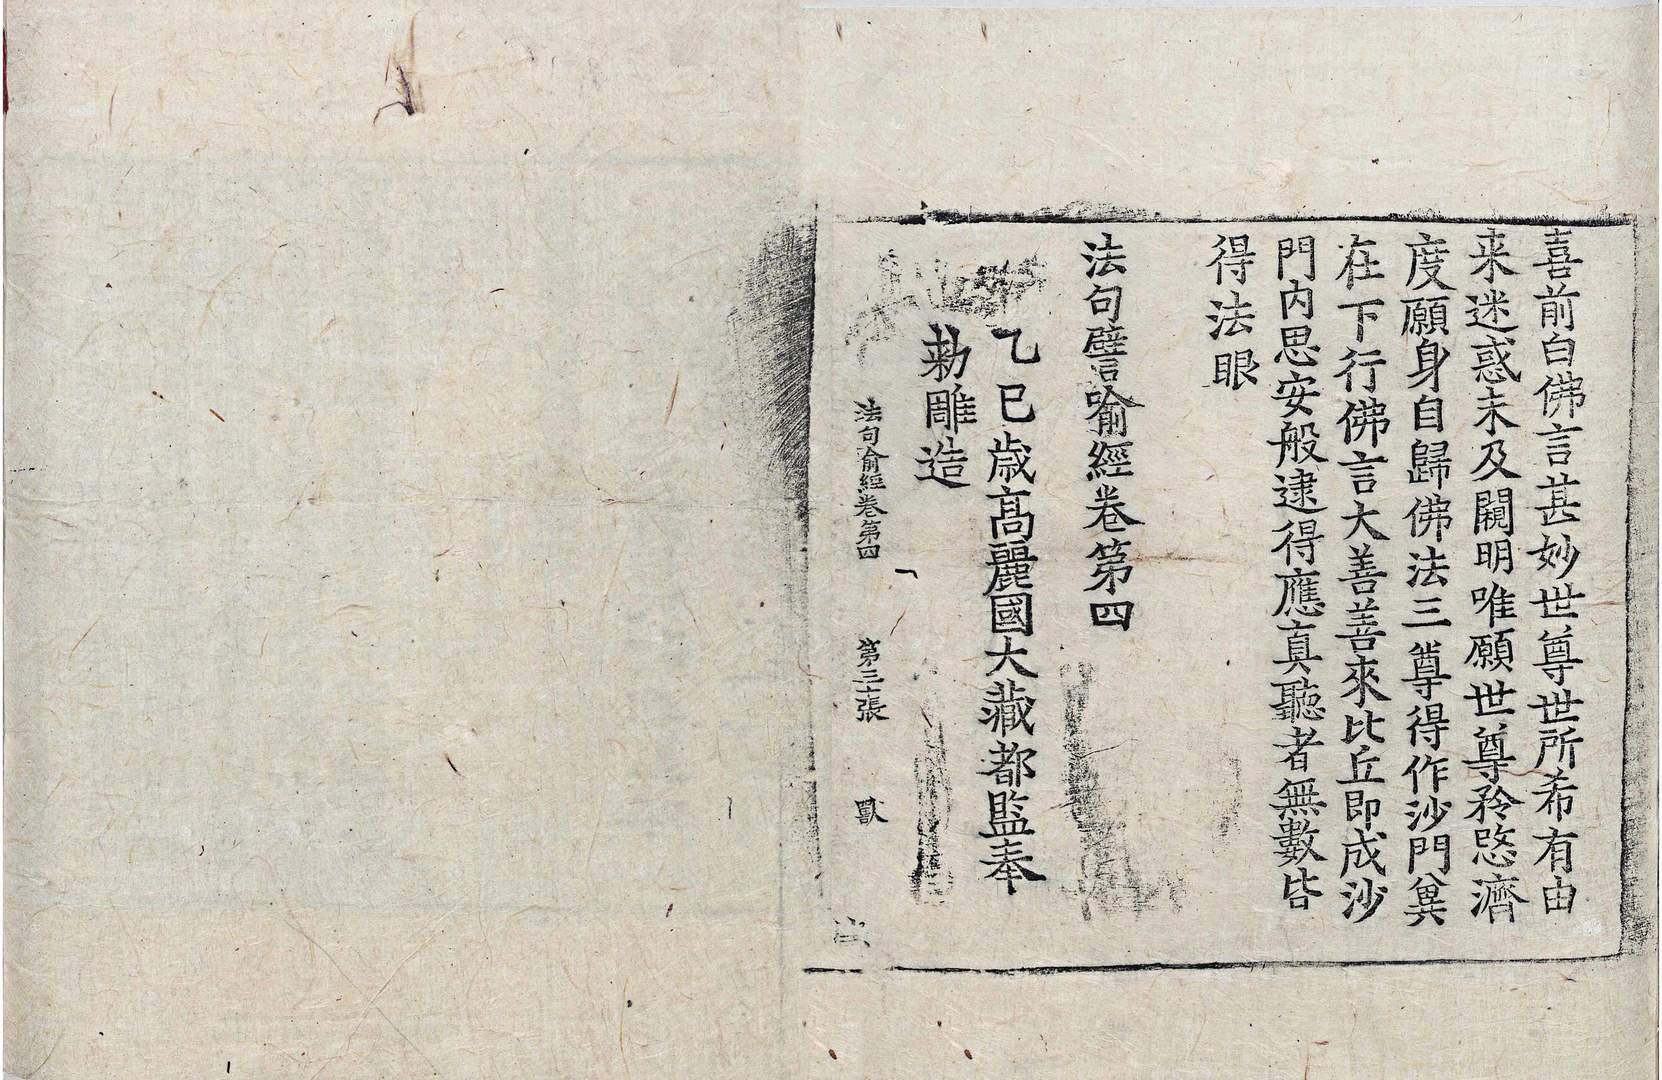 喜前白佛言甚妙世尊世所希有由
来迷惑未及闚明唯願世尊矜愍濟
度願身自歸佛法三尊得作沙門冀
在下行佛言大善善來比丘即成沙
門内思安般逮得應真聽者無數皆
得法眼
法句譬喻經卷第四
乙巳歳高麗國大藏都監奉
勅雕造
法句喻經卷第四 第三張 獸